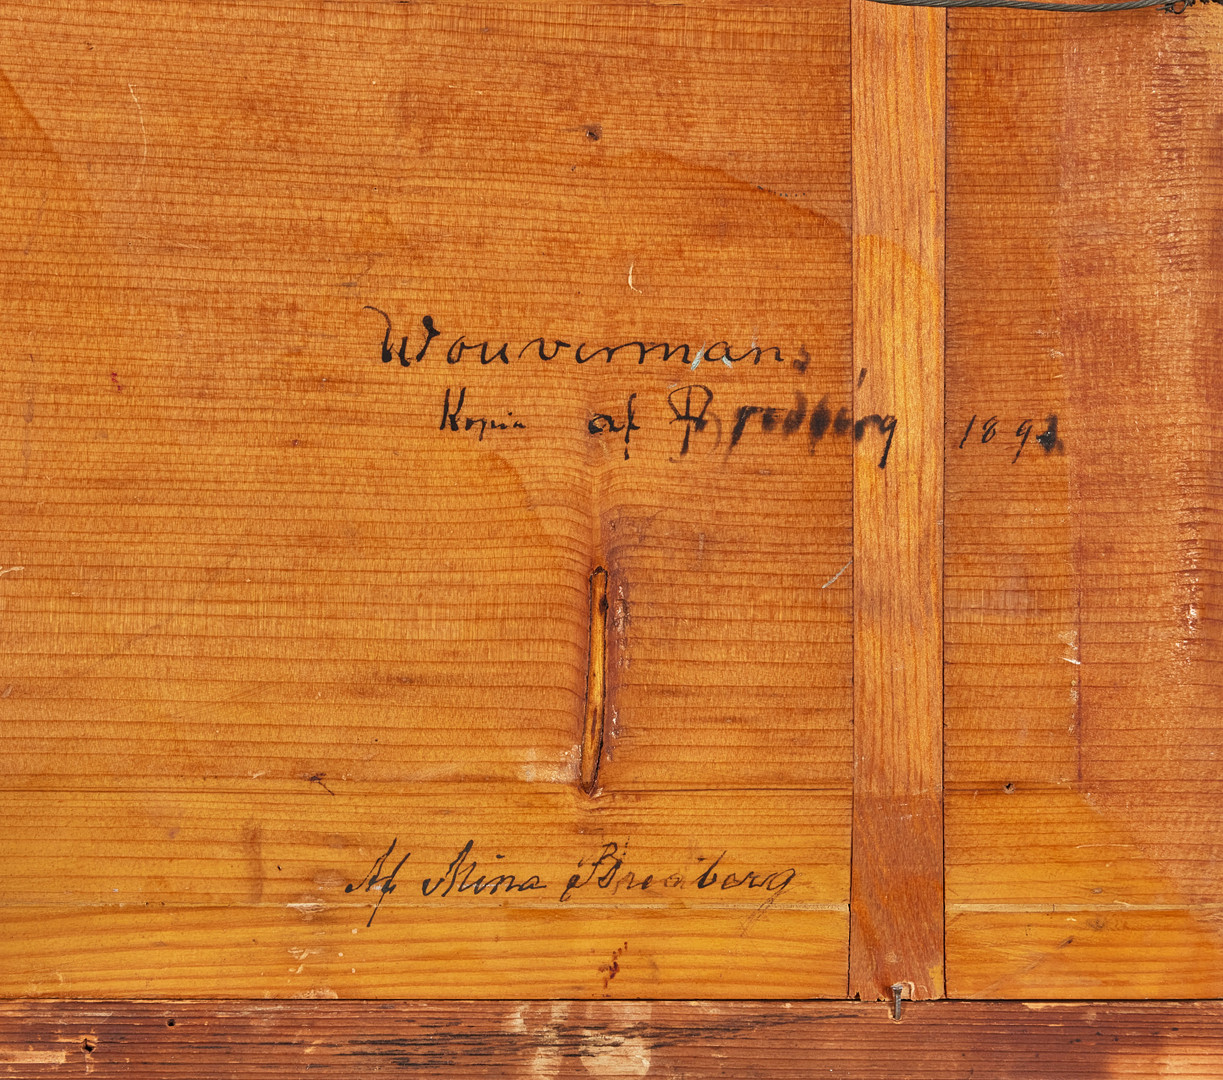 Wouverman.
Kopia af Bredberg 189
Af Mina Bredberg